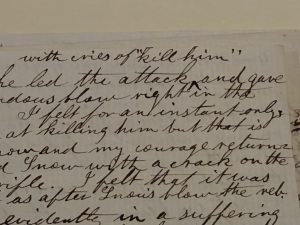 with cries of "kill him"
he led the attack and gave
blow right in the
I felt for an instant only
at killing him but that is
now and my courage returns
d Snow with a crack on the
rifle. I felt that it was
as after Snow's blow the reb.
evidently in a suffering